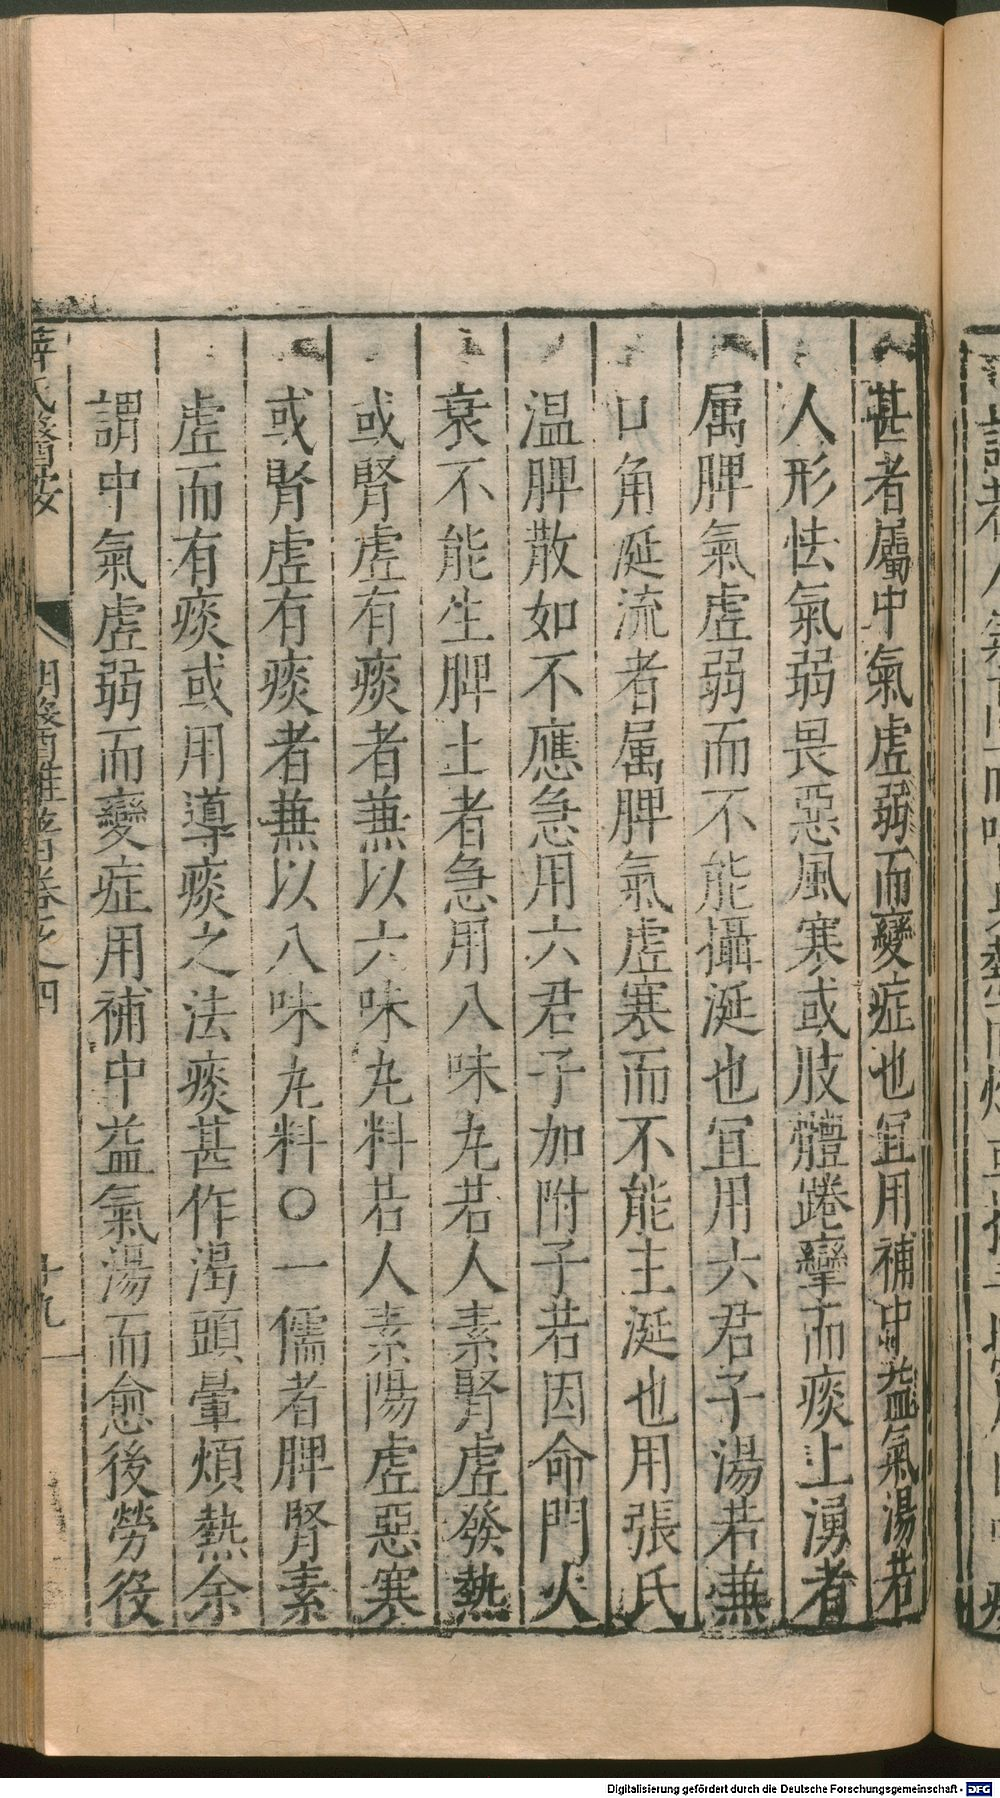 甚者屬中氣虛弱而變症也宜用補中益氣湯若
人形怯氣弱畏惡風寒或肢體踡攣而痰上湧者
属脾氣虛弱而不能攝涎也宜用六君子湯若兼
口角涎流者属脾氣虛寒而不能主涎也用張氏
温脾散如不應急用六君子加附子若因命門火
衰不能生脾土者急用八味丸若人素腎虛發熱
或腎虛有痰者兼以六味丸料若人素陽虛惡寒
或腎虛有痰者兼以八味丸料○一儒者脾腎素
虛而有痰或用導痰之法痰甚作渴頭暈煩熱余
謂中氣虛弱而變症用補中益氣湯而愈後勞役
薛氏醫按
明醫雜著卷之四
十九
Digitalisierung gefördert durch die Deutsche Forschungsgemeinschaft - DFG